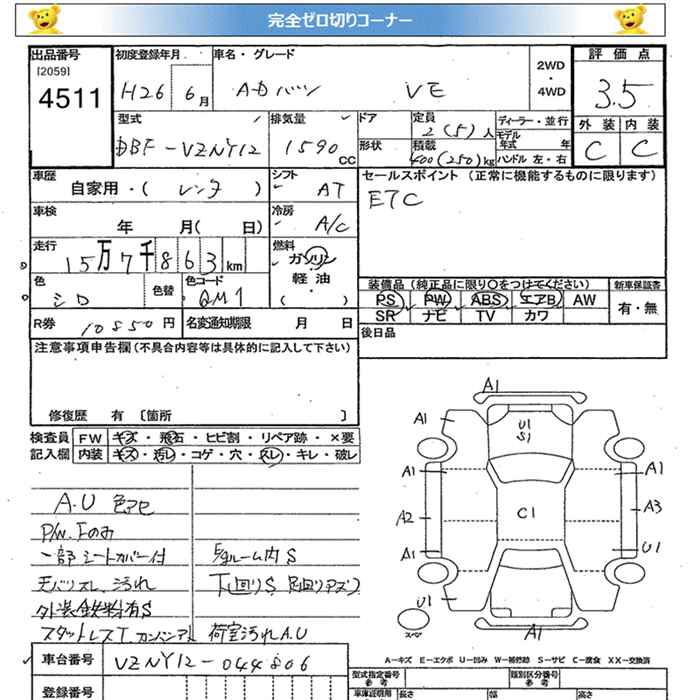 完全ゼロ切りコーナー
出品番号
[2059]
4511
初度登録年月
H26 6月
車名・グレード
ADバン VE
2WD
・
4WD
評価点
3.5
外装 内装
C C
型式
DBF-VZNY12
排気量
1590 CC
ドア
形状
定員
2(5)人
積載
400(250)kg
ディーラー・並行
モデル年式 年
ハンドル 左・右
車歴
自家用・( レンタ )
シフト
AT
セールスポイント (正常に機能するものに限ります)
ETC
車検
年 月( 日)
冷房
A/C
走行
15万7千863km
燃料
ガソリン
軽油
( )
色
シロ
色替
色コード
QM1
装備品 (純正品に限り○をつけてください)
新車保証書
PS PW ABS エアB AW
SR ナビ TV カワ
有・無
R券 10850円
名変通知期限 月 日
後日品
注意事項申告欄(不具合内容等は具体的に記入して下さい)
修復歴 有 〔箇所 〕
検査員記入欄
FW キズ・飛石・ヒビ割・リペア跡・×要
内装 キズ・汚レ・コゲ・穴・スレ・キレ・破レ
A.U 色アセ
P/W.Fのみ
一部シートカバー付
天バリスレ、汚れ
外装鉄粉有S
スタットレスT
ルーム内S
下回りS
荷室汚れA.U
A1
A1
U1
S1
A1
A1
A1
A2
C1
A3
A1
U1
U1
スペア
A1
A-キズ E-エクボ U-凹み W-補修跡 S-サビ C-腐食 XX-交換済
車台番号 VZNY12-044806
登録番号
型式指定番号
参考
類別区分番号
参考
車庫証明用
長さ 幅 高さ